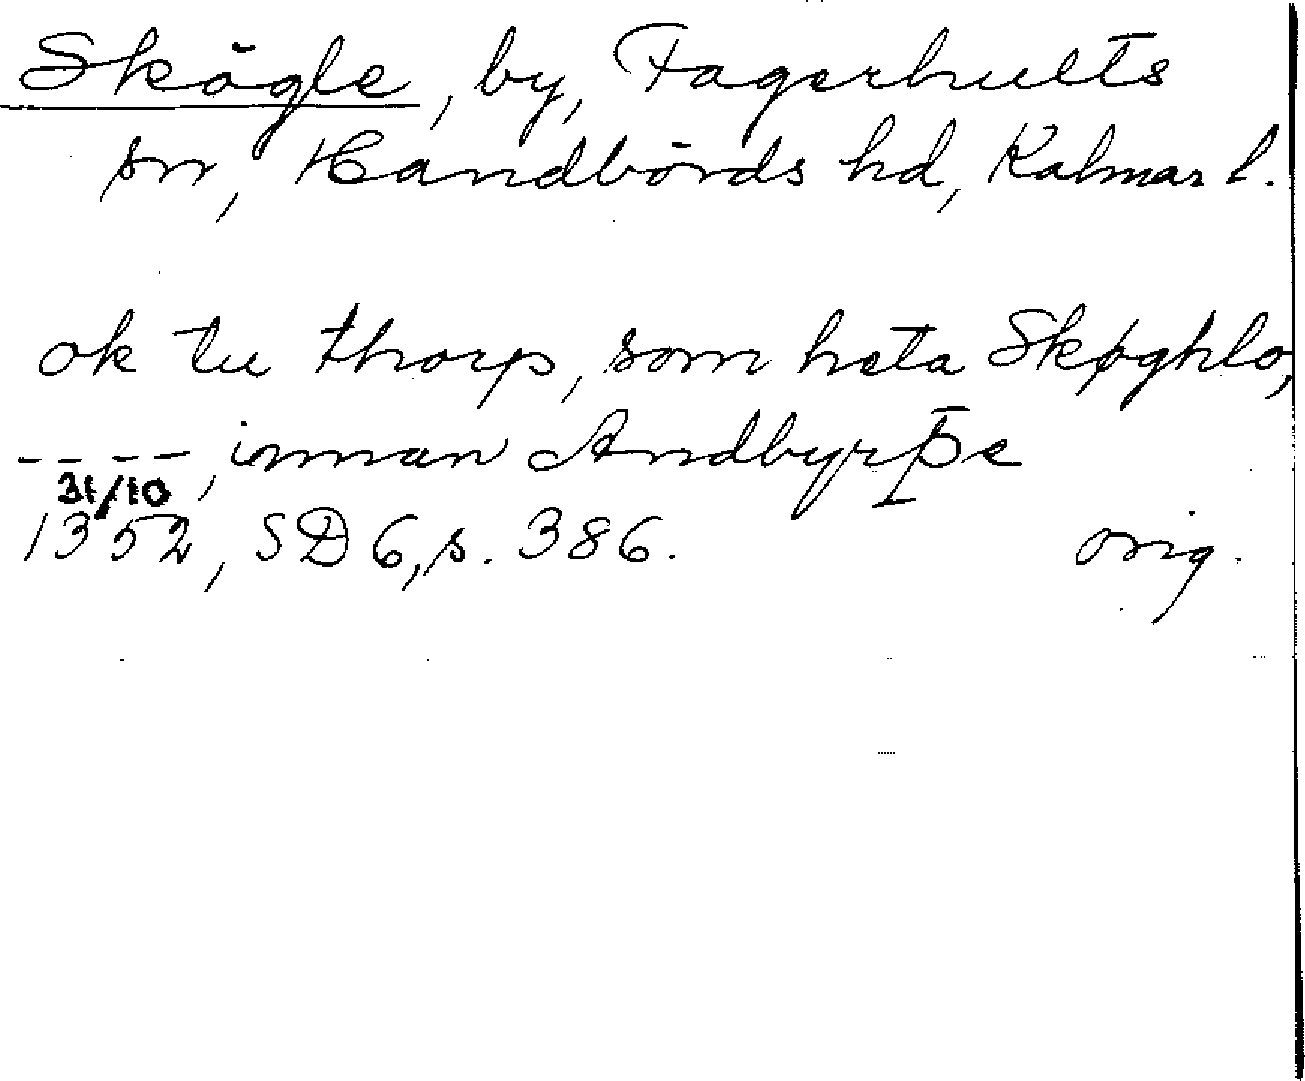 Skögle, by, Fagerhults
sn, Handbörds hd, Kalmar l.
ok tu thorp, som heta Skøghlo,
- - - -, innan Andbyrþe
31/10
1352, SD 6, s. 386. orig.